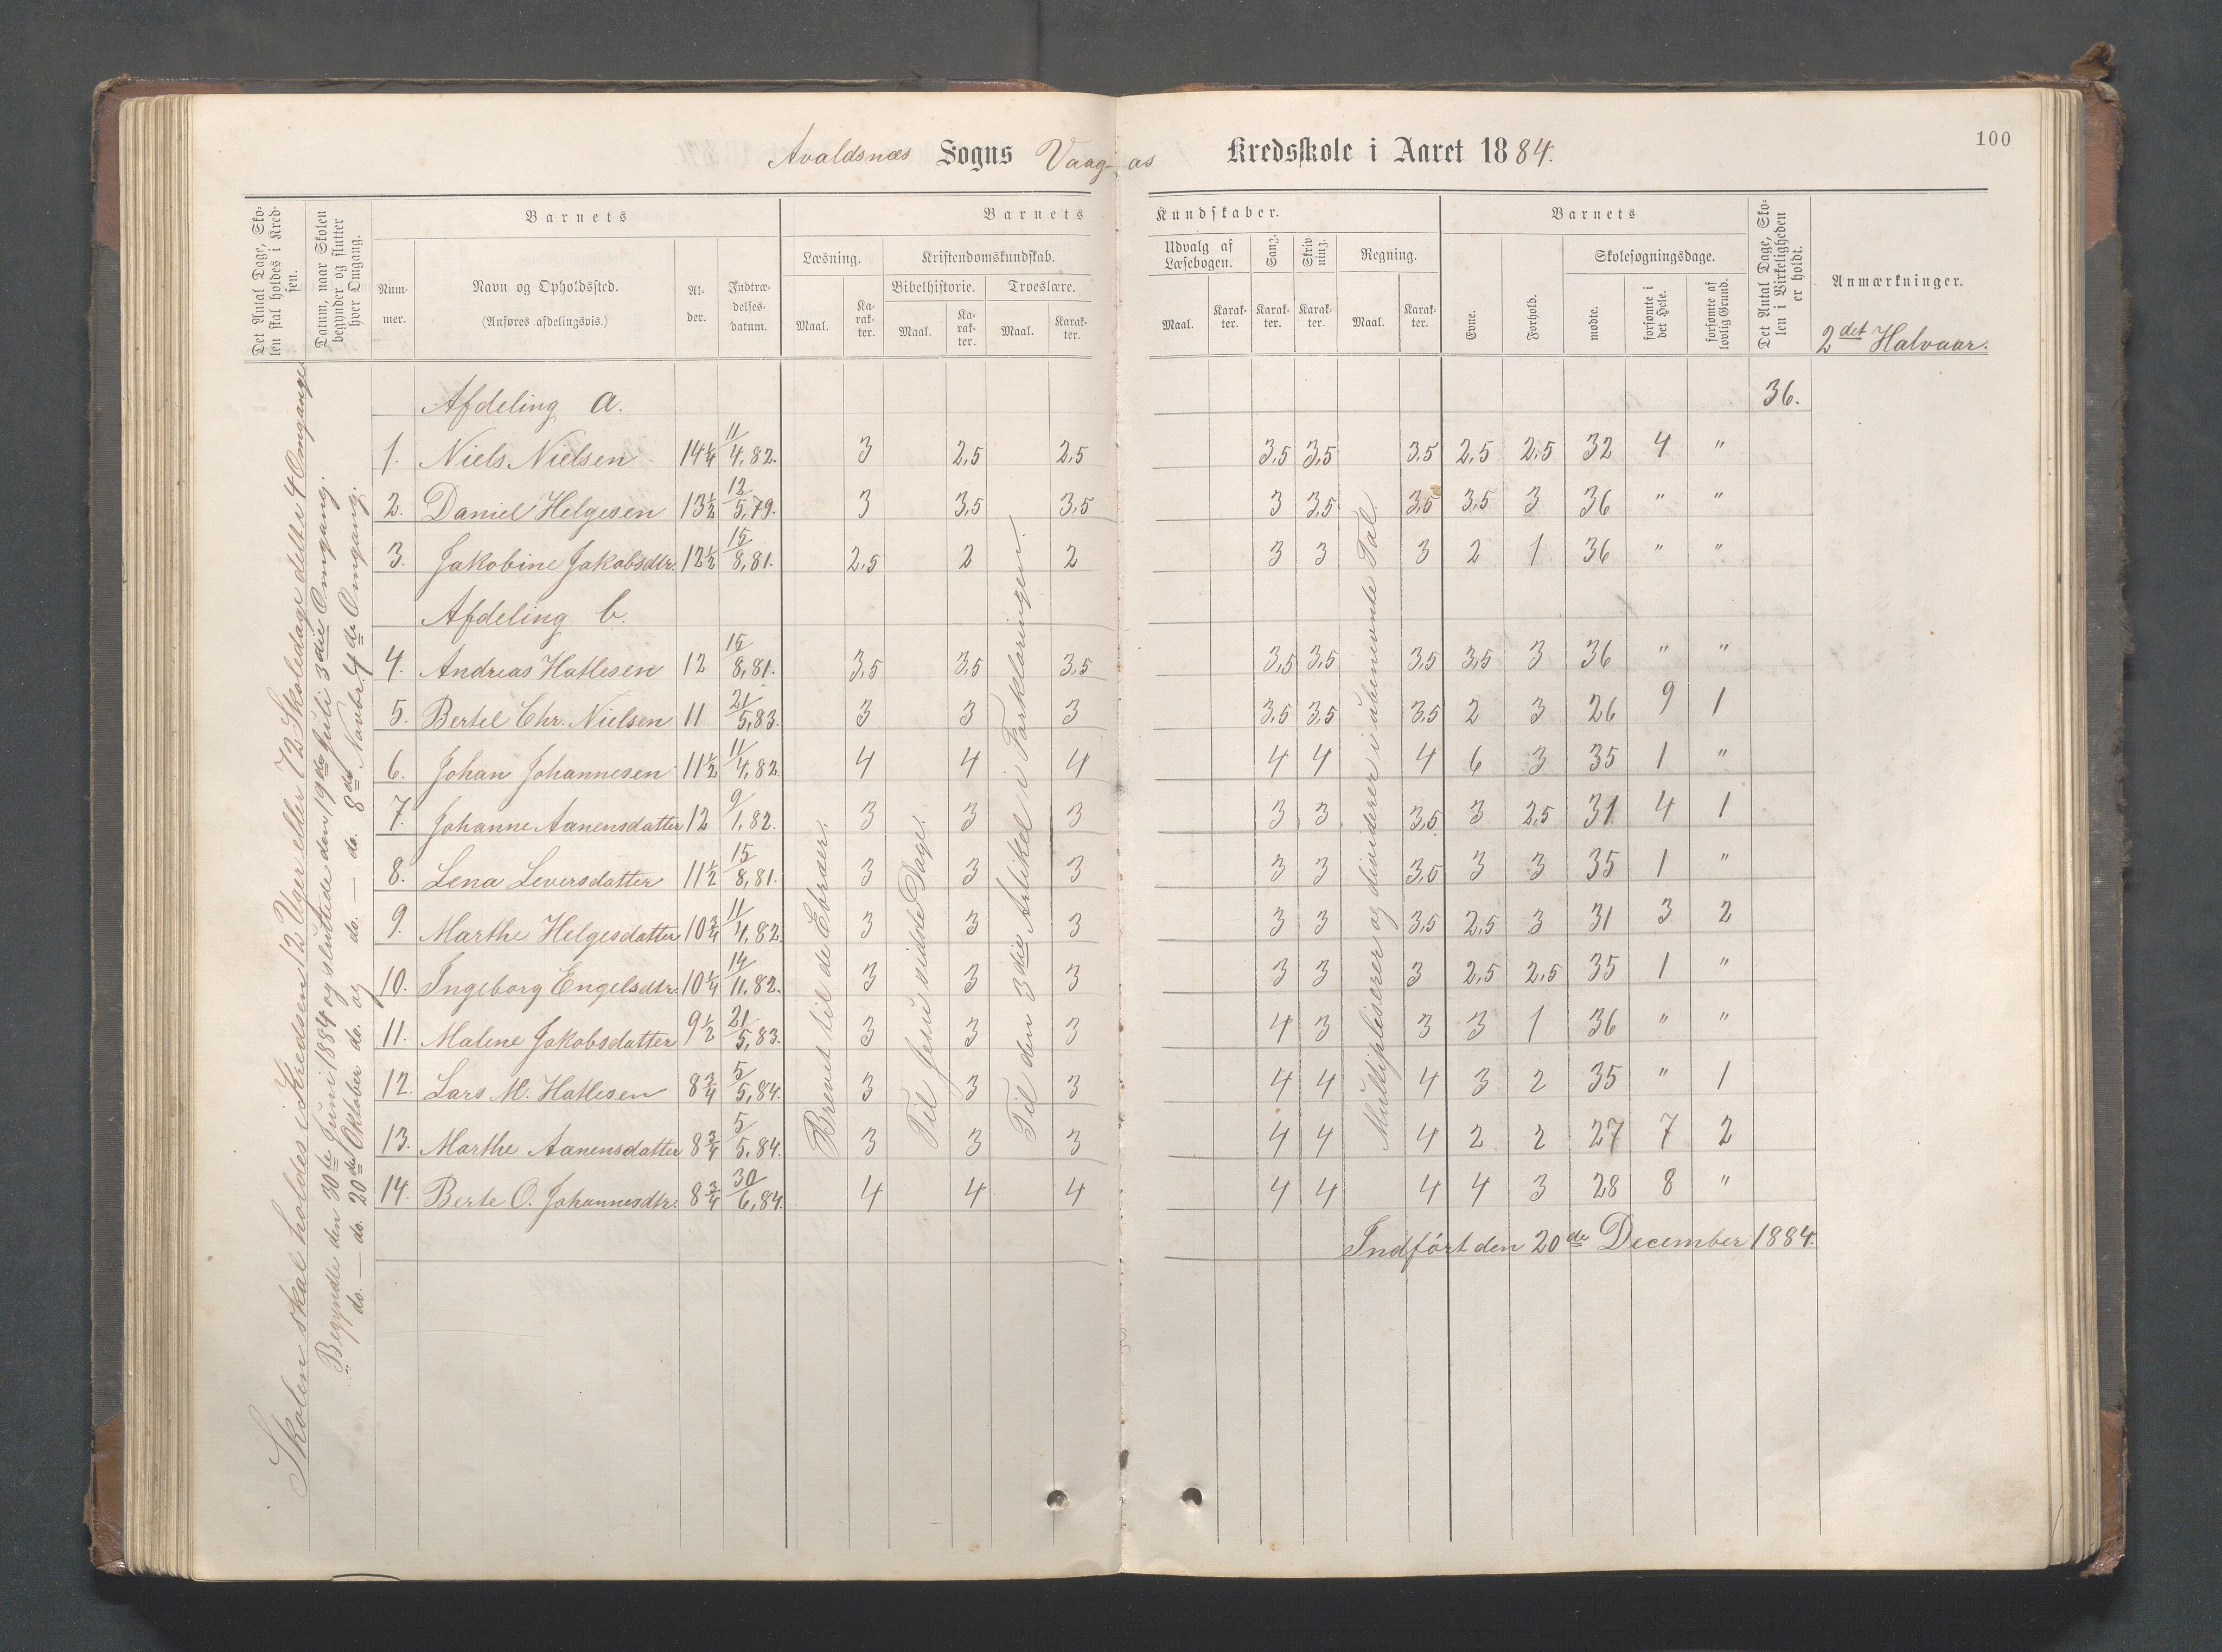 100
Avaldsnæs Sogns Vaag-as Kredsskole i Aaret 1884.
Det Antal Dage, Skolen skal holdes i Kredsen.
Datum, naar Skolen begynder og slutter hver Omgang.
Barnets
Nummer.
Navn og Opholdssted.
(Anføres afdelingsvis.)
Alder.
Indtrædelsesdatum.
Barnets Kundskaber.
Læsning.
Maal. Karakter.
Kristendomskundskab.
Bibelhistorie. Troeslære.
Maal. Karakter. Maal. Karakter.
Udvalg af Læsebogen.
Maal. Karakter.
Sang. Karakter.
Skrivning. Karakter.
Regning.
Maal. Karakter.
Barnets
Evne. Forhold.
Skolesøgningsdage.
mødte. forsømte i det Hele. forsømte af lovlig Grund.
Det Antal Dage, Skolen i Virkeligheden er holdt.
Anmærkninger.
2det Halvaar.
Skolen skal holdes i Kredsen 12 Uger eller 72 Skoledage delt i 4 Omgange.
Begyndte den 30te Juni 1884 og sluttede den 19de Juli 3die Omgang.
" do. — do. 20de Oktober do. og do. — do. 8de Novbr. 4de Omgang.
Afdeling a. 36.
1. Niels Nielsen 14 1/4 11/4,82. 3 2,5 2,5 3,5 3,5 3,5 2,5 2,5 32 4 "
2. Daniel Helgesen 13 1/2 12/5,79. 3 3,5 3,5 3 3,5 3,5 3,5 3 36 " "
3. Jakobine Jakobsdtr. 12 1/2 15/8,81. 2,5 2 2 3 3 3 2 1 36 " "
Afdeling b.
4. Andreas Hatlesen 12 15/8,81. 3,5 3,5 3,5 3,5 3,5 3,5 3,5 3 36 " "
5. Bertel Chr. Nielsen 11 21/5,83. 3 3 3 3,5 3,5 3,5 2 3 26 9 1
6. Johan Johannesen 11 1/2 11/4,82. 4 4 4 4 4 4 6 3 35 1 "
7. Johanne Aanensdatter 12 9/1,82. 3 3 3 3 3 3,5 3 2,5 31 4 1
8. Lena Leversdatter 11 1/2 15/8,81. 3 3 3 3 3 3,5 3 3 35 1 "
9. Marthe Helgesdatter 10 3/4 11/4,82. 3 3 3 3 3 3,5 2,5 3 31 3 2
10. Ingeborg Engelsdtr. 10 1/4 14/11,82. 3 3 3 3 3 3 2,5 2,5 35 1 "
11. Malene Jakobsdatter 9 1/2 21/5,83. 3 3 3 4 3 3 3 1 36 " "
12. Lars M. Hatlesen 8 3/4 5/5,84. 3 3 3 4 4 4 3 2 35 " 1
13. Marthe Aanensdatter 8 3/4 5/5,84. 3 3 3 4 4 4 2 2 27 7 2
14. Berte O. Johannesdtr. 8 3/4 30/6,84. 4 4 4 4 4 4 4 3 28 8 "
Brevet til de Ebræer.
Til Jesu sidste Dage.
Til den 3die Artikel i Forklaringen.
Multipliserer og dividerer i ubenævnte Tal.
Indført den 20de December 1884.